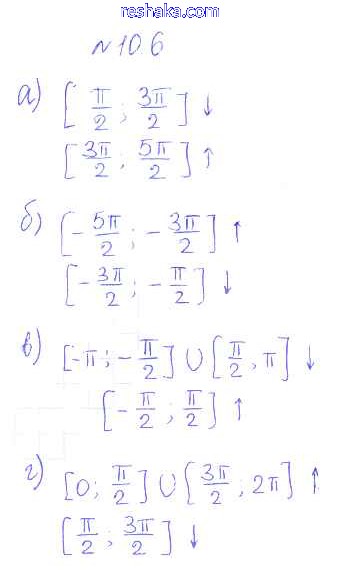 reshaka.com
№10.6
а) [π/2; 3π/2] ↓
[3π/2; 5π/2] ↑
б) [-5π/2; -3π/2] ↑
[-3π/2; -π/2] ↓
в) [-π; -π/2] ∪ [π/2, π] ↓
[-π/2; π/2] ↑
г) [0; π/2] ∪ [3π/2; 2π] ↑
[π/2; 3π/2] ↓